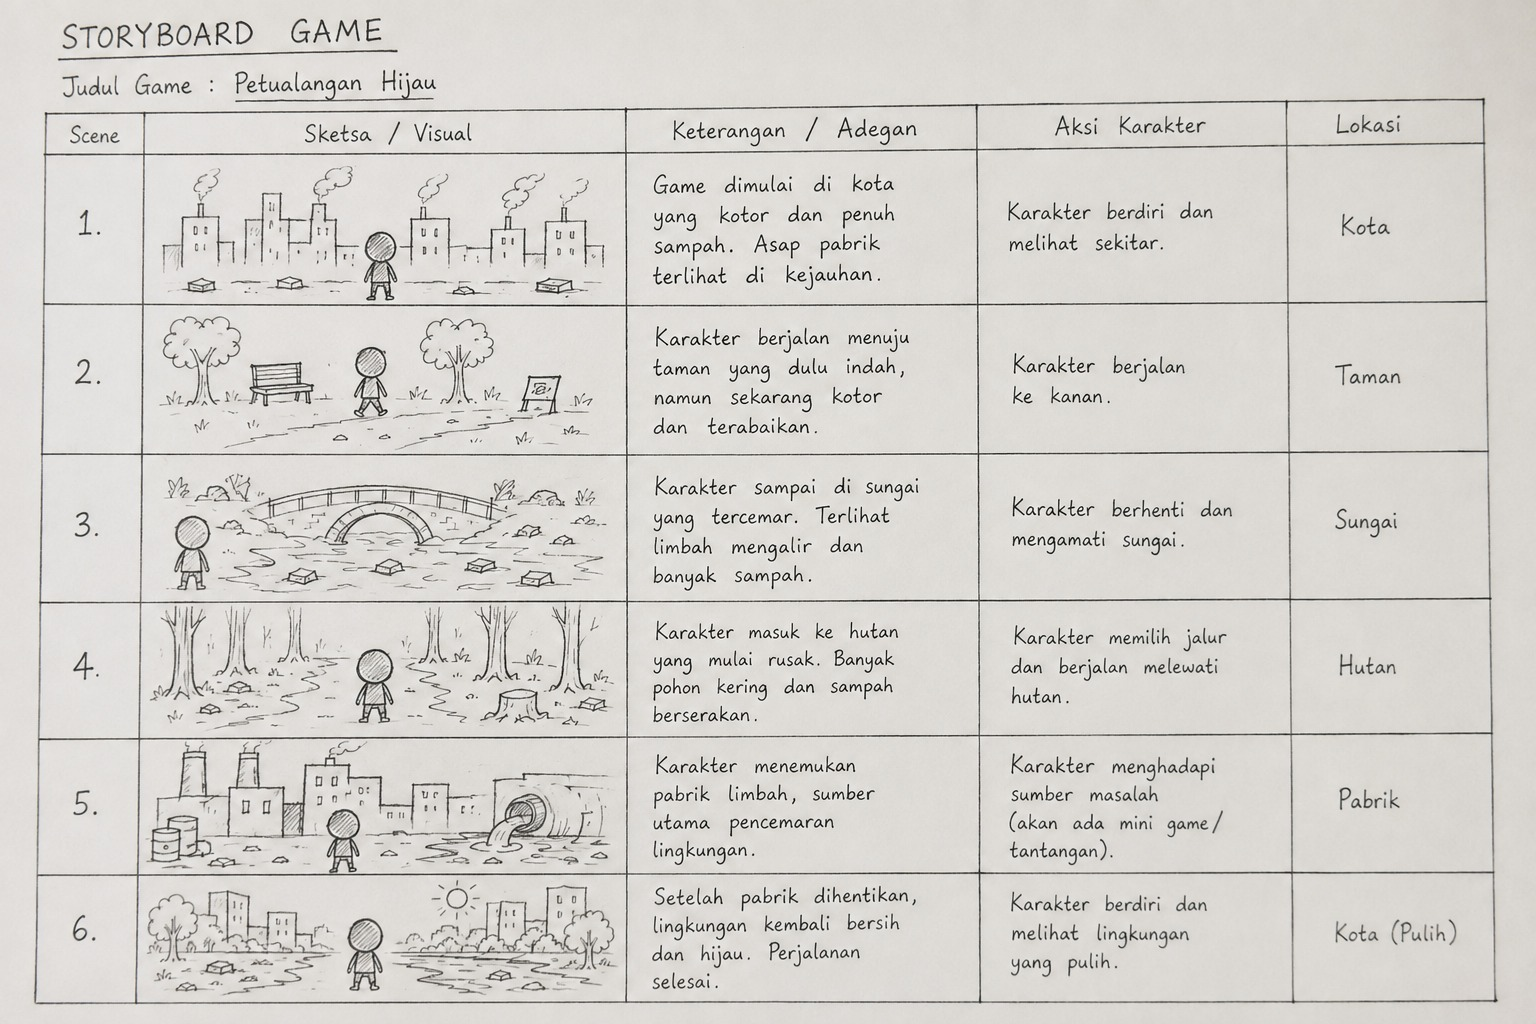 STORYBOARD GAME
Judul Game : Petualangan Hijau
Scene
Sketsa / Visual
Keterangan / Adegan
Aksi Karakter
Lokasi
1.
Game dimulai di kota
yang kotor dan penuh
sampah. Asap pabrik
terlihat di kejauhan.
Karakter berdiri dan
melihat sekitar.
Kota
2.
Karakter berjalan menuju
taman yang dulu indah,
namun sekarang kotor
dan terabaikan.
Karakter berjalan
ke kanan.
Taman
3.
Karakter sampai di sungai
yang tercemar. Terlihat
limbah mengalir dan
banyak sampah.
Karakter berhenti dan
mengamati sungai.
Sungai
4.
Karakter masuk ke hutan
yang mulai rusak. Banyak
pohon kering dan sampah
berserakan.
Karakter memilih jalur
dan berjalan melewati
hutan.
Hutan
5.
Karakter menemukan
pabrik limbah, sumber
utama pencemaran
lingkungan.
Karakter menghadapi
sumber masalah
(akan ada mini game/
tantangan).
Pabrik
6.
Setelah pabrik dihentikan,
lingkungan kembali bersih
dan hijau. Perjalanan
selesai.
Karakter berdiri dan
melihat lingkungan
yang pulih.
Kota (Pulih)